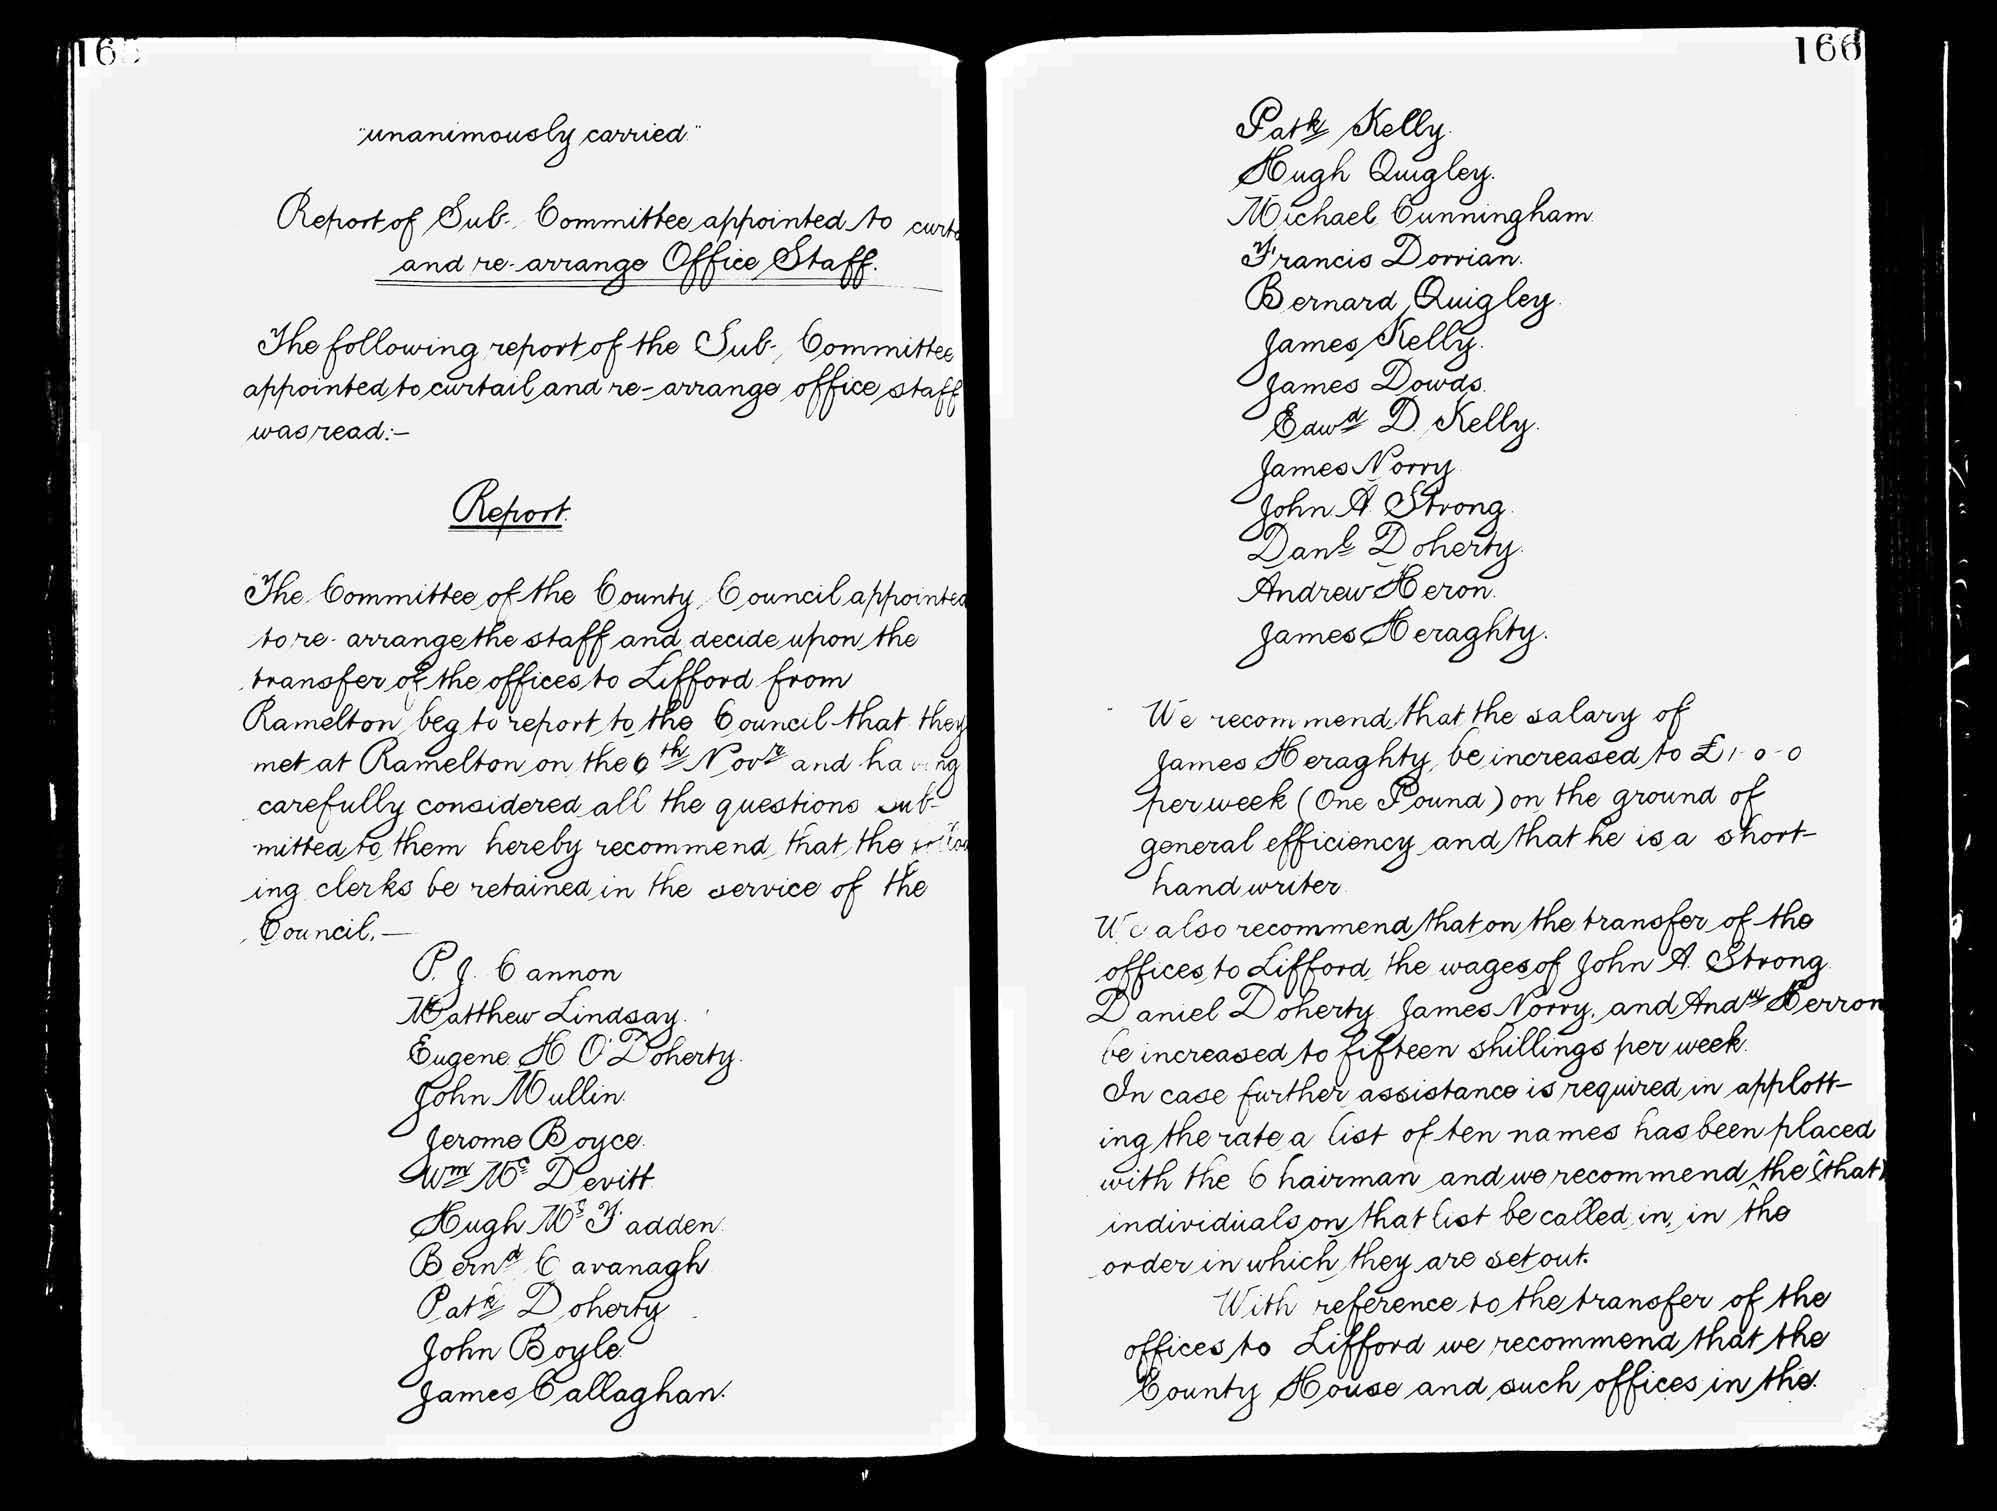 165
"unanimously carried"
Report of Sub-Committee appointed to
and re-arrange Office Staff.
The following report of the Sub-Committee
appointed to curtail and re-arrange office staff
was read:—
Report.
The Committee of the County Council appointed
to re-arrange the staff and decide upon the
transfer of the offices to Lifford from
Ramelton beg to report to the Council that they
met at Ramelton on the 6th Novr and having
carefully considered all the questions sub-
mitted to them hereby recommend that the follow
ing clerks be retained in the service of the
Council.—
P. J. Cannon
Matthew Lindsay.
Eugene H O'Doherty.
John Mullin.
Jerome Boyce.
Wm Mc Devitt
Hugh Mc Fadden.
Bernd Cavanagh
Patk Doherty
John Boyle
James Callaghan.
166
Patk Kelly.
Hugh Quigley.
Michael Cunningham.
Francis Dorrian.
Bernard Quigley.
James Kelly.
James Dowds.
Edwd D. Kelly.
James Norry
John A. Strong.
Danl Doherty.
Andrew Heron.
James Heraghty.
We recommend that the salary of
James Heraghty be increased to £1-0-0
per week (One Pound) on the ground of
general efficiency and that he is a short-
hand writer.
We also recommend that on the transfer of the
offices to Lifford the wages of John A. Strong
Daniel Doherty James Norry, and Andw Herron
be increased to fifteen shillings per week.
In case further assistance is required in applott-
ing the rate a list of ten names has been placed
with the Chairman and we recommend the (that)
individuals on that list be called in, in the
order in which they are set out.
With reference to the transfer of the
offices to Lifford we recommend that the
County House and such offices in the